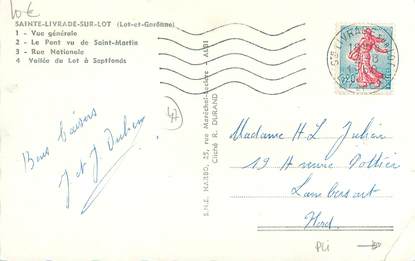 10€
SAINTE-LIVRADE-SUR-LOT (Lot-et-Garonne)
1 - Vue générale
2 - Le Pont vu de Saint-Martin
3 - Rue Nationale
4 - Vallée du Lot à Septfonds
Bons baisers
J et J Dubien
47
S.N.E. NARBO, 25, rue Maréchal-Leclerc - ALBI
Cliché R. DURAND
STE LIVRADE SUR LOT
Madame H L Julien
19 H Pottier
Lambersart
Nord
Pli